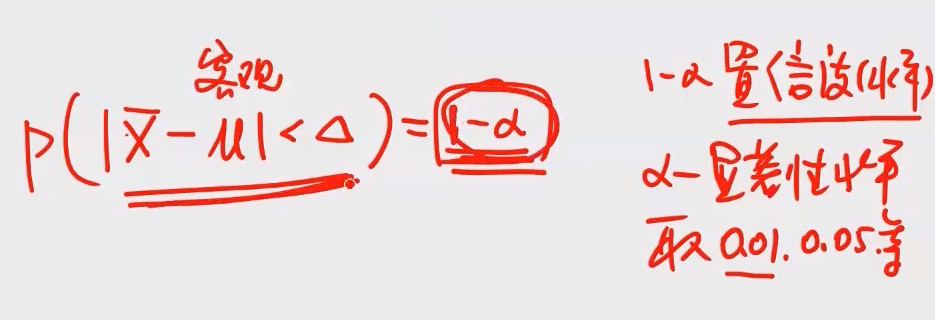 客观
P(|X̄-μ|<Δ)=1-α
1-α 置信度(水平)
α-显著性水平
取 0.01. 0.05.等